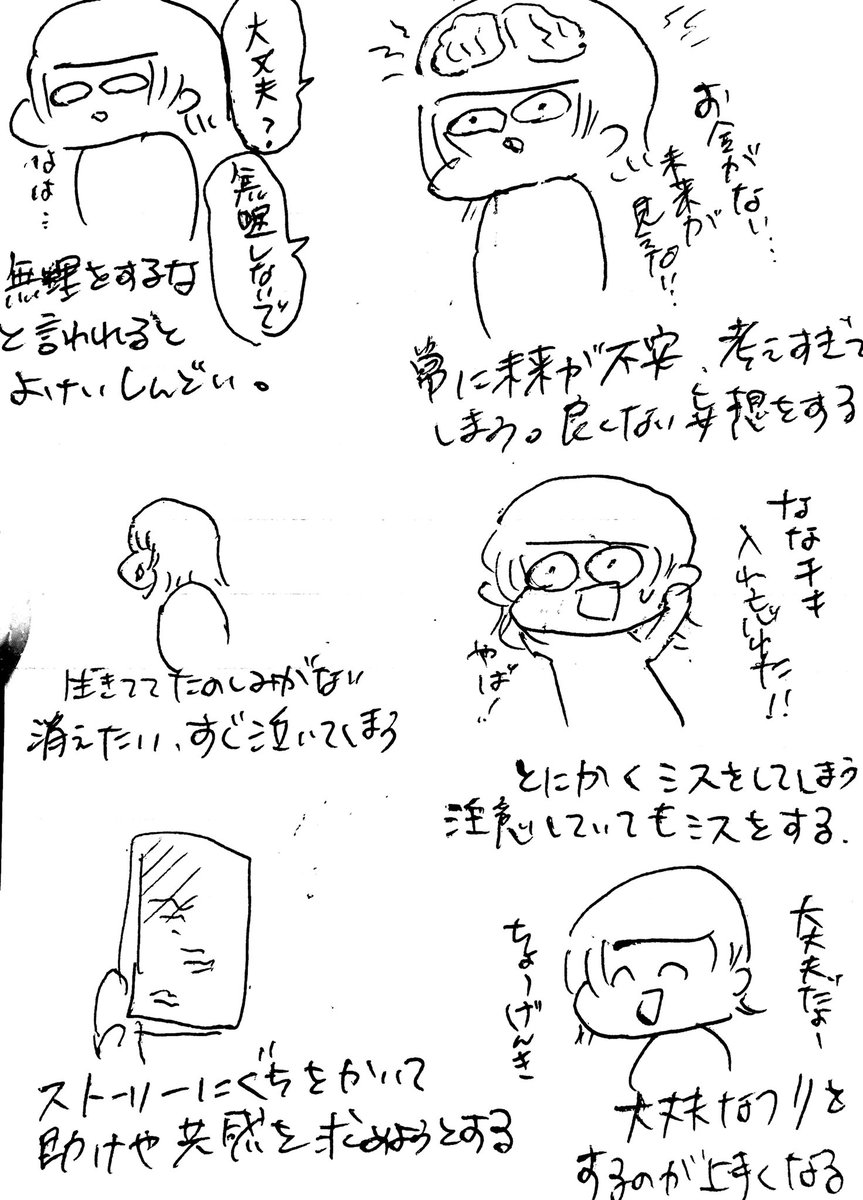 お金がない…
未来が
見えない…
常に未来が不安、考えすぎて
しまう。良くない妄想をする
大丈夫?
無理しないで
なは…
無理をするな
と言われると
よけいしんどい。
ななチキ
入れ忘れた!!
やば!
とにかくミスをしてしまう
注意していてもミスをする.
生きててたのしみがない
消えたい、すぐ泣いてしまう
大丈夫だよー
ちょーげんき
大丈夫なフリを
するのが上手くなる
ストーリーにぐちをかいて
助けや共感を求めようとする